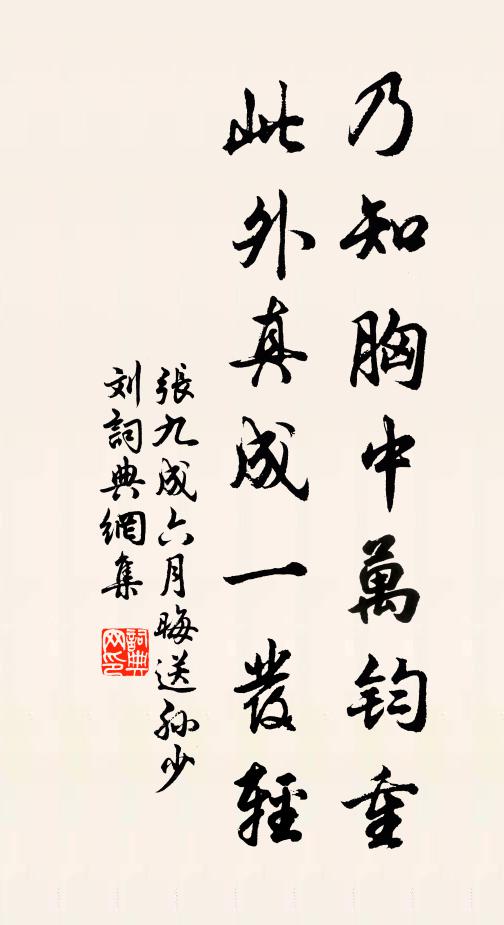 乃知胸中萬鈞重
此外真成一發輕
張九成六月晦送孙少
刘詞典網集
詞典网印